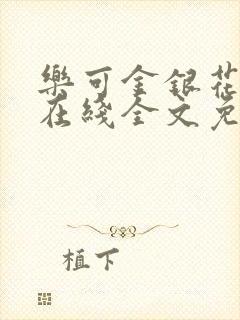 樂可金銀花
在綫全文免
植下